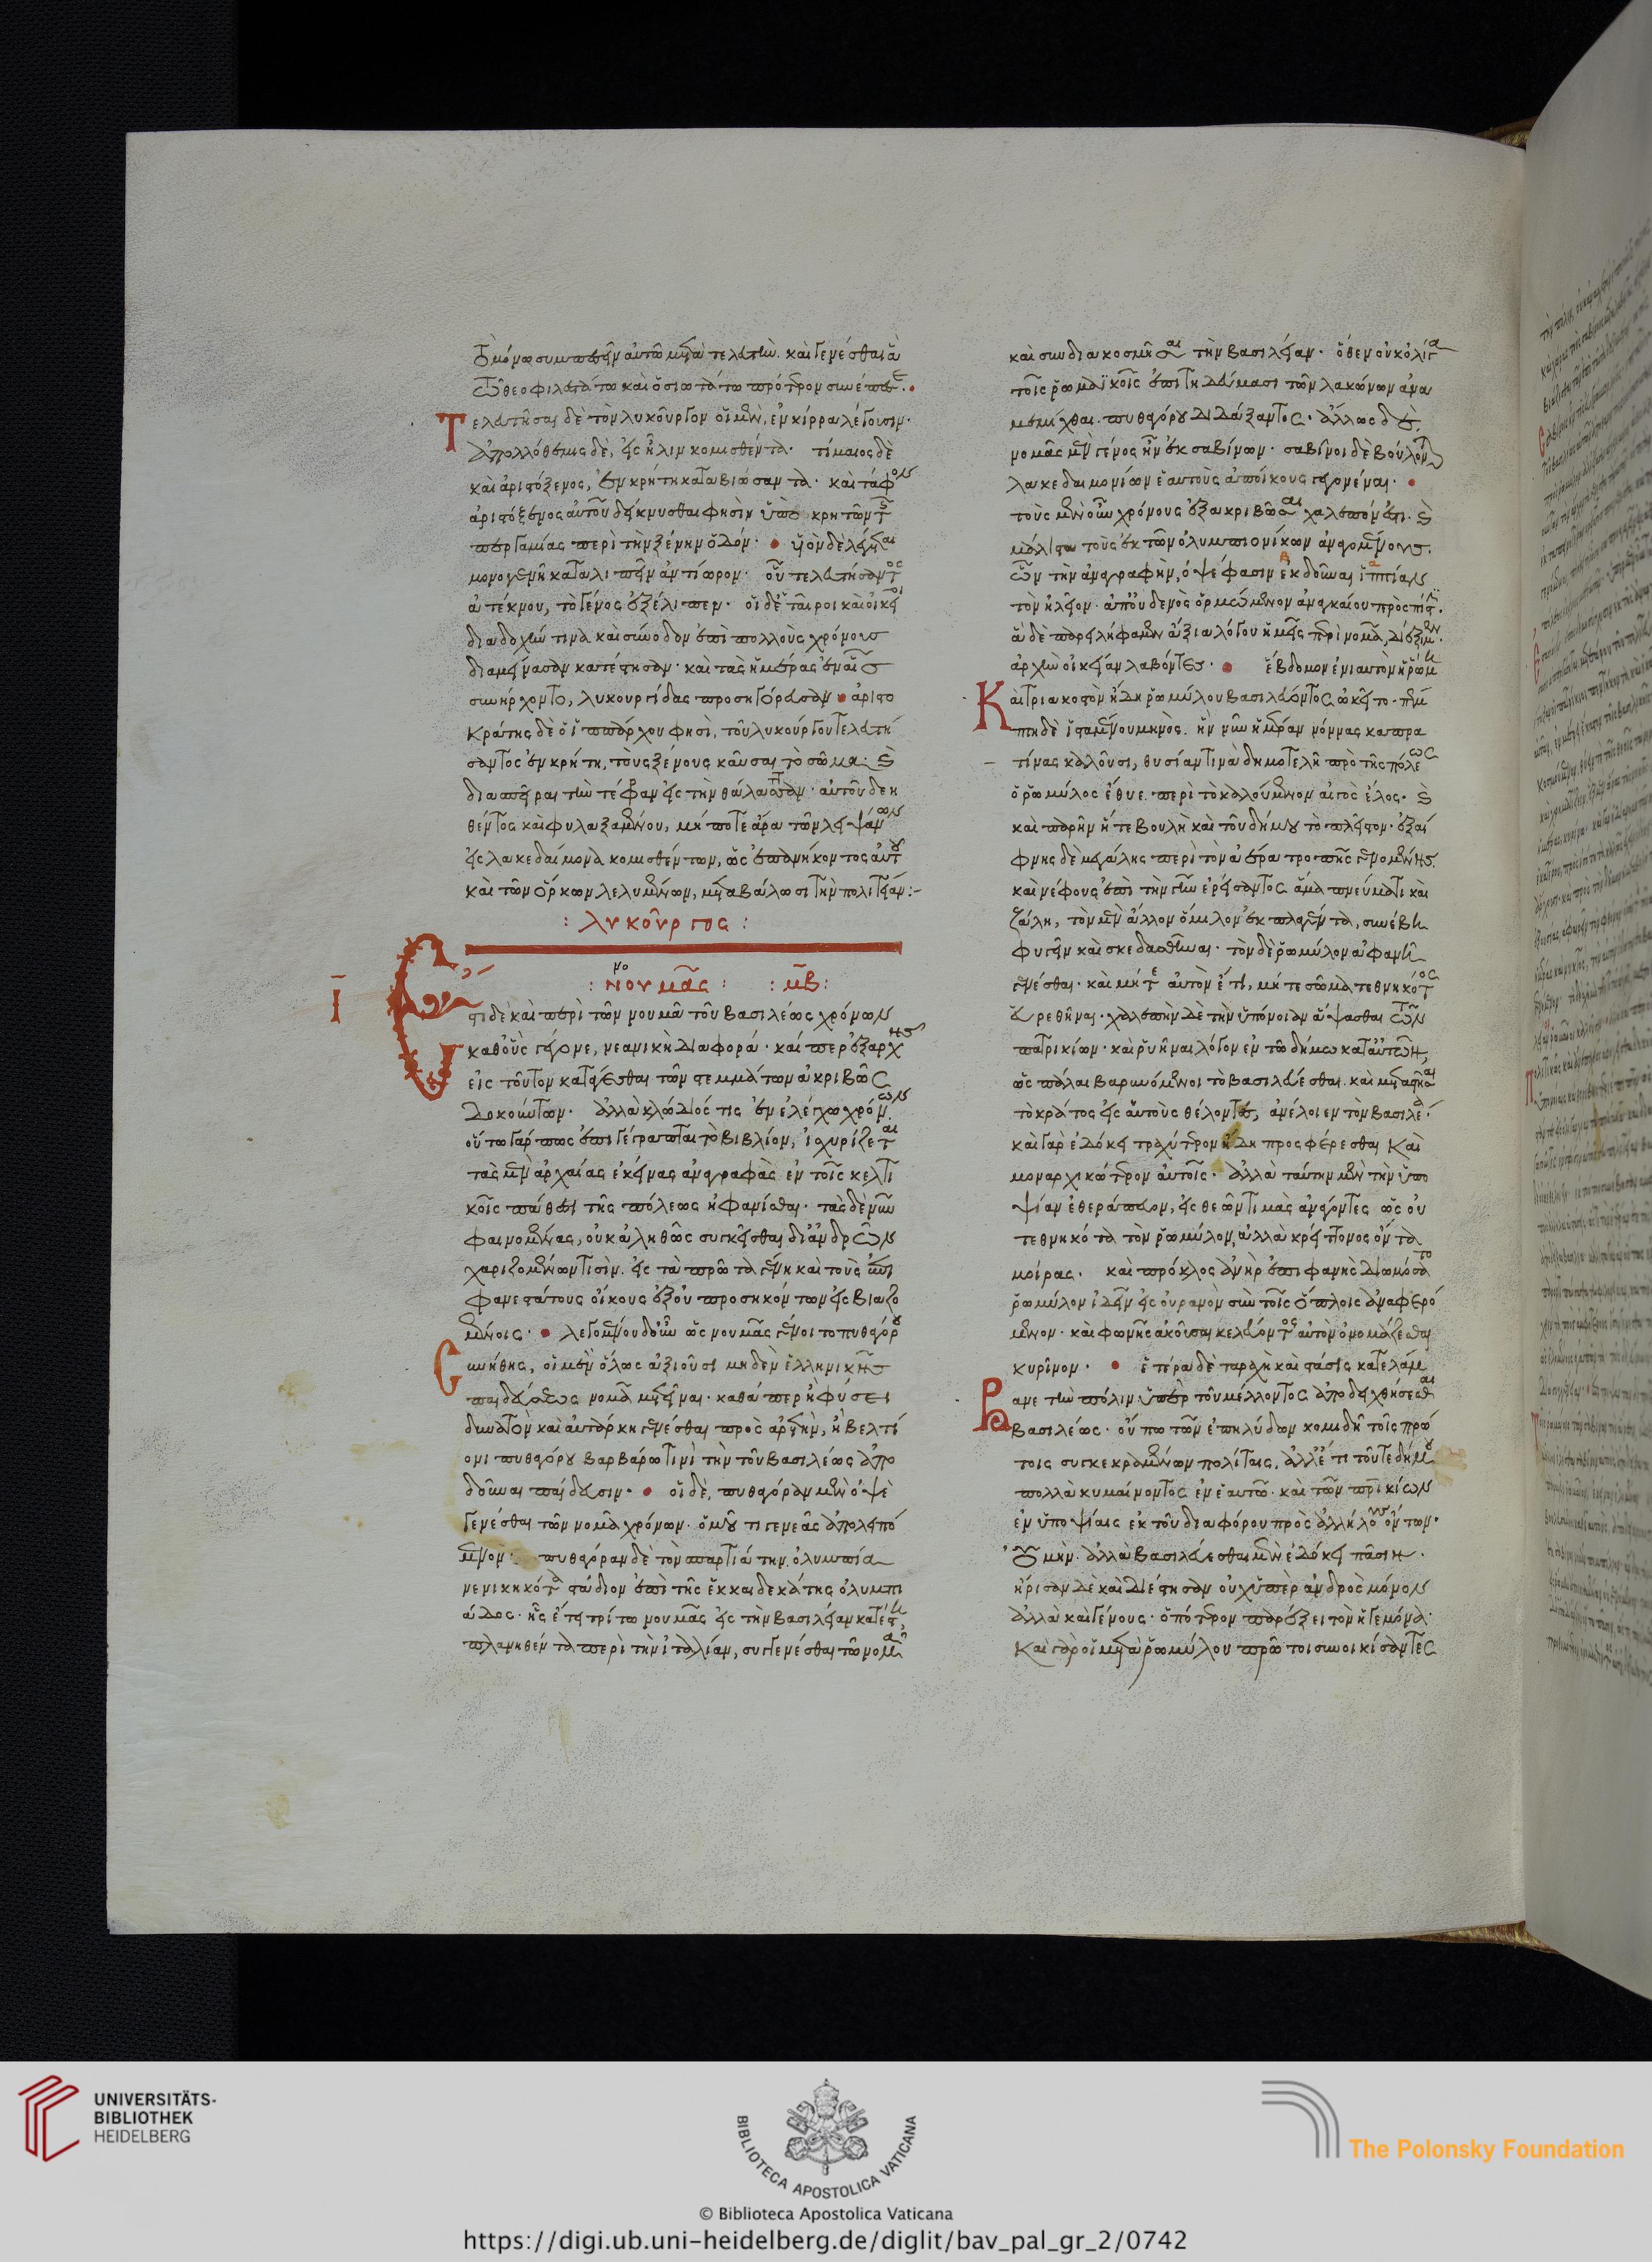 ὃ μόνῳ συμπεσεῖν αὐτῷ μετὰ τελευτὴν. καὶ γενέσθαι ἃ
τῷ θεοφιλεστάτω καὶ ὁσιωτάτω πρότερον συνέπεσε.
Τελευτῆσαι δὲ τὸν λυκοῦργον οἱ μὲν, ἐν κίρρα λέγουσιν·
ἀπολλόθεμις δὲ, εἰς ἦλιν κομισθέντα· τίμαιος δὲ
καὶ ἀριστόξενος, ἐν κρήτη καταβιώσαντα· καὶ τάφον
ἀριστόξενος αὐτοῦ δείκνυσθαι φησὶν ὑπὸ κρητῶν τῆς
περγαμίας περὶ τὴν ξένην ὁδόν· υἱὸν δὲ λέγεται
μονογενῆ καταλιπεῖν ἀντίωρον· οὗ τελευτήσαντος
ἀτέκνου, τὸ γένος ἐξέλιπεν· οἱ δ' ἑταῖροι καὶ οἰκεῖοι
διαδοχήν τινα καὶ σύνοδον ἐπὶ πολλοὺς χρόνους
διαμείνασαν κατέστησαν· καὶ τὰς ἡμέρας ἐν αἷς
συνήρχοντο, λυκουργίδας προσηγόρευσαν ἀριστο
κράτης δὲ ὁ ἱππάρχου φησὶ, τοῦ λυκούργου τελευτή
σαντος ἐν κρήτη, τοὺς ξένους καῦσαι τὸ σῶμα· καὶ
διασπεῖραι τὴν τέφραν εἰς τὴν θάλατταν· αὐτοῦ δεη
θέντος καὶ φυλαξαμένου, μή ποτε ἄρα τῶν λειψάνων
εἰς λακεδαίμονα κομισθέντων, ὡς ἐπανήκοντος αὐτοῦ
καὶ τῶν ὅρκων λελυμένων, μεταβάλωσι τὴν πολιτείαν:-
: λυκοῦργος :
: νουμᾶς : : μβ :
Ἔστι δὲ καὶ περὶ τῶν νουμᾶ τοῦ βασιλέως χρόνων
καθ' οὓς γέγονε, νεανικὴ διαφορά· καί περ ἐξαρχῆς
εἰς τοῦτον κατάγεσθαι τῶν στεμμάτων ἀκριβῶς
δοκούντων· ἀλλὰ κλώδιός τις ἐν ἐλέγχω χρόνων·
οὕτω γάρ πως ἐπιγέγραπται τὸ βιβλίον, ἰσχυρίζεται
τὰς μὲν ἀρχαίας ἐκείνας ἀναγραφὰς ἐν τοῖς κελτι
κοῖς πάθεσι τῆς πόλεως ἠφανίσθαι· τὰς δὲ νῦν
φαινομένας, οὐκ ἀληθῶς συγκεῖσθαι δι' ἀνδρῶν
χαριζομένων τισὶν. εἰς τὰ πρῶτα γένη καὶ τοὺς ἐπι
φανεστάτους οἴκους ἐξ οὐ προσηκόντων εἰσβιαζο
μένοις· λεγομένου δ' οὖν ὡς νουμᾶς γένοιτο πυθαγόρου
Συνήθης, οἱ μὲν ὅλως ἀξιοῦσι μηδὲν ἑλληνικῆς
παιδεύσεως νομᾶ μετεῖναι· καθάπερ ἢ φύσει
δυνατὸν καὶ αὐτάρκη γενέσθαι πρὸς ἀρετὴν, ἢ βελτί
ονι πυθαγόρου βαρβάρω τινὶ τὴν τοῦ βασιλέως ἀπο
δοῦναι παίδευσιν· οἱ δὲ, πυθαγόραν μὲν ὀψὲ
γενέσθαι τῶν νομᾶ χρόνων· ὁμοῦ τι γενεᾶς ἀπολειπό
μενον· πυθαγόραν δὲ τὸν σπαρτιάτην ὀλυμπία
νενικηκότα στάδιον ἐπὶ τῆς ἑκκαιδεκάτης ὀλυμπι
άδος· ἧς ἔτει τρίτω νουμᾶς εἰς τὴν βασιλείαν κατέστη,
πλανηθέντα περὶ τὴν ἰταλίαν, συγγενέσθαι τῶ νομᾶ
καὶ συνδιακοσμῆσαι τὴν βασιλείαν· ὅθεν οὐκ ὀλίγα
τοῖς ῥωμαϊκοῖς ἐπιτηδεύμασι τῶν λακώνων ἀνα
μεμίχθαι. πυθαγόρου διδάξαντος· ἄλλως δὲ
νομᾶς μὲν γένος ἦν ἐκ σαβίνων· σαβῖνοι δὲ βούλονται
λακεδαιμονίων ἑαυτοὺς ἀποίκους γεγονέναι·
τοὺς μὲν οὖν χρόνους ἐξακριβῶσαι χαλεπόν ἐστι. καὶ
μάλιστα τοὺς ἐκ τῶν ὀλυμπιονίκων ἀναγομένους.
ὧν τὴν ἀναγραφὴν, ὀψέ φασιν ἐκδοῦναι ἱππίαν
τὸν ἠλεῖον· ἀπ' οὐδενὸς ὁρμώμενον ἀναγκαίου πρὸς πίστιν.
ἃ δὲ παρειλήφαμεν ἀξιαλόγου ἡμεῖς περὶ νομᾶ, διέξιμεν.
ἀρχὴν οἰκείαν λαβόντες· ἕβδομον ἐνιαυτὸν ἡ ῥώμη
Καὶ τριακοστὸν ἤδη ῥωμύλου βασιλεύοντος ὠκεῖτο· πέμ
πτη δὲ ἱσταμένου μηνὸς. ἣν νῦν ἡμέραν νόννας καπρα
τίνας καλοῦσι, θυσίαν τινὰ δημοτελῆ πρὸ τῆς πόλεως
ὁ ῥωμύλος ἔθυε περὶ τὸ καλούμενον αἰγὸς ἕλος· καὶ
καὶ παρῆν ἥ τε βουλὴ καὶ τοῦ δήμου τὸ πλεῖστον· ἐξαί
φνης δὲ μεγάλης περὶ τὸν ἀέρα τροπῆς γενομένης
καὶ νέφους ἐπὶ τὴν γῆν ἐρείσαντος ἅμα πνεύματι καὶ
ζάλη, τὸν μὲν ἄλλον ὅμιλον ἐκπλαγέντα, συνέβη
φυγεῖν καὶ σκεδασθῆναι· τὸν δὲ ῥωμύλον ἀφανῆ
γενέσθαι· καὶ μήτε αὐτὸν ἔτι, μήτε σῶμα τεθνηκότος
εὑρεθῆναι· χαλεπὴν δὲ τὴν ὑπόνοιαν ἅψασθαι τῶν
πατρικίων· καὶ ῥυῆναι λόγον ἐν τῶ δήμω κατ' αὐτῶν,
ὡς πάλαι βαρυνόμενοι τὸ βασιλεύεσθαι καὶ μεταστῆσαι
τὸ κράτος εἰς αὑτοὺς θέλοντες, ἀνέλοιεν τὸν βασιλέα·
καὶ γὰρ ἐδόκει τραχύτερον ἤδη προσφέρεσθαι καὶ
μοναρχικώτερον αὐτοῖς· ἀλλὰ ταύτην μὲν τὴν ὑπο
ψίαν ἐθεράπευον, εἰς θεῶν τιμὰς ἀνάγοντες ὡς οὐ
τεθνηκότα τὸν ῥωμύλον, ἀλλὰ κρείττονος ὄντα
μοίρας· καὶ πρόκλος ἀνὴρ ἐπιφανὴς διωμόσατο
ῥωμύλον ἰδεῖν εἰς οὐρανὸν σὺν τοῖς ὅπλοις ἀναφερό
μενον· καὶ φωνῆς ἀκοῦσαι κελεύοντος αὐτὸν ὀνομάζεσθαι
κυρῖνον· ἑτέρα δὲ ταραχὴ καὶ στάσις κατελάμ
Βανε τὴν πόλιν ὑπὲρ τοῦ μέλλοντος ἀποδειχθήσεσθαι
βασιλέως· οὔπω τῶν ἐπηλύδων κομιδῆ τοῖς πρώ
τοις συγκεκραμένων πολίταις, ἀλλ' ἔτι τοῦ τε δήμου
πολλὰ κυμαίνοντος ἐν ἑαυτῶ· καὶ τῶν πατρικίων
ἐν ὑποψίαις ἐκ τοῦ διαφόρου πρὸς ἀλλήλους ὄντων·
οὐ μὴν ἀλλὰ βασιλεύεσθαι μὲν ἐδόκει πᾶσιν·
ἤρισαν δὲ καὶ διέστησαν οὐχ ὑπὲρ ἀνδρὸς μόνον
ἀλλὰ καὶ γένους· ὁπότερον παρέξει τὸν ἡγεμόνα·
καὶ γὰρ οἱ μετὰ ῥωμύλου πρῶτοι συνοικίσαντες
Ι
UNIVERSITÄTS-
BIBLIOTHEK
HEIDELBERG
BIBLIOTECA APOSTOLICA VATICANA
The Polonsky Foundation
© Biblioteca Apostolica Vaticana
https://digi.ub.uni-heidelberg.de/diglit/bav_pal_gr_2/0742